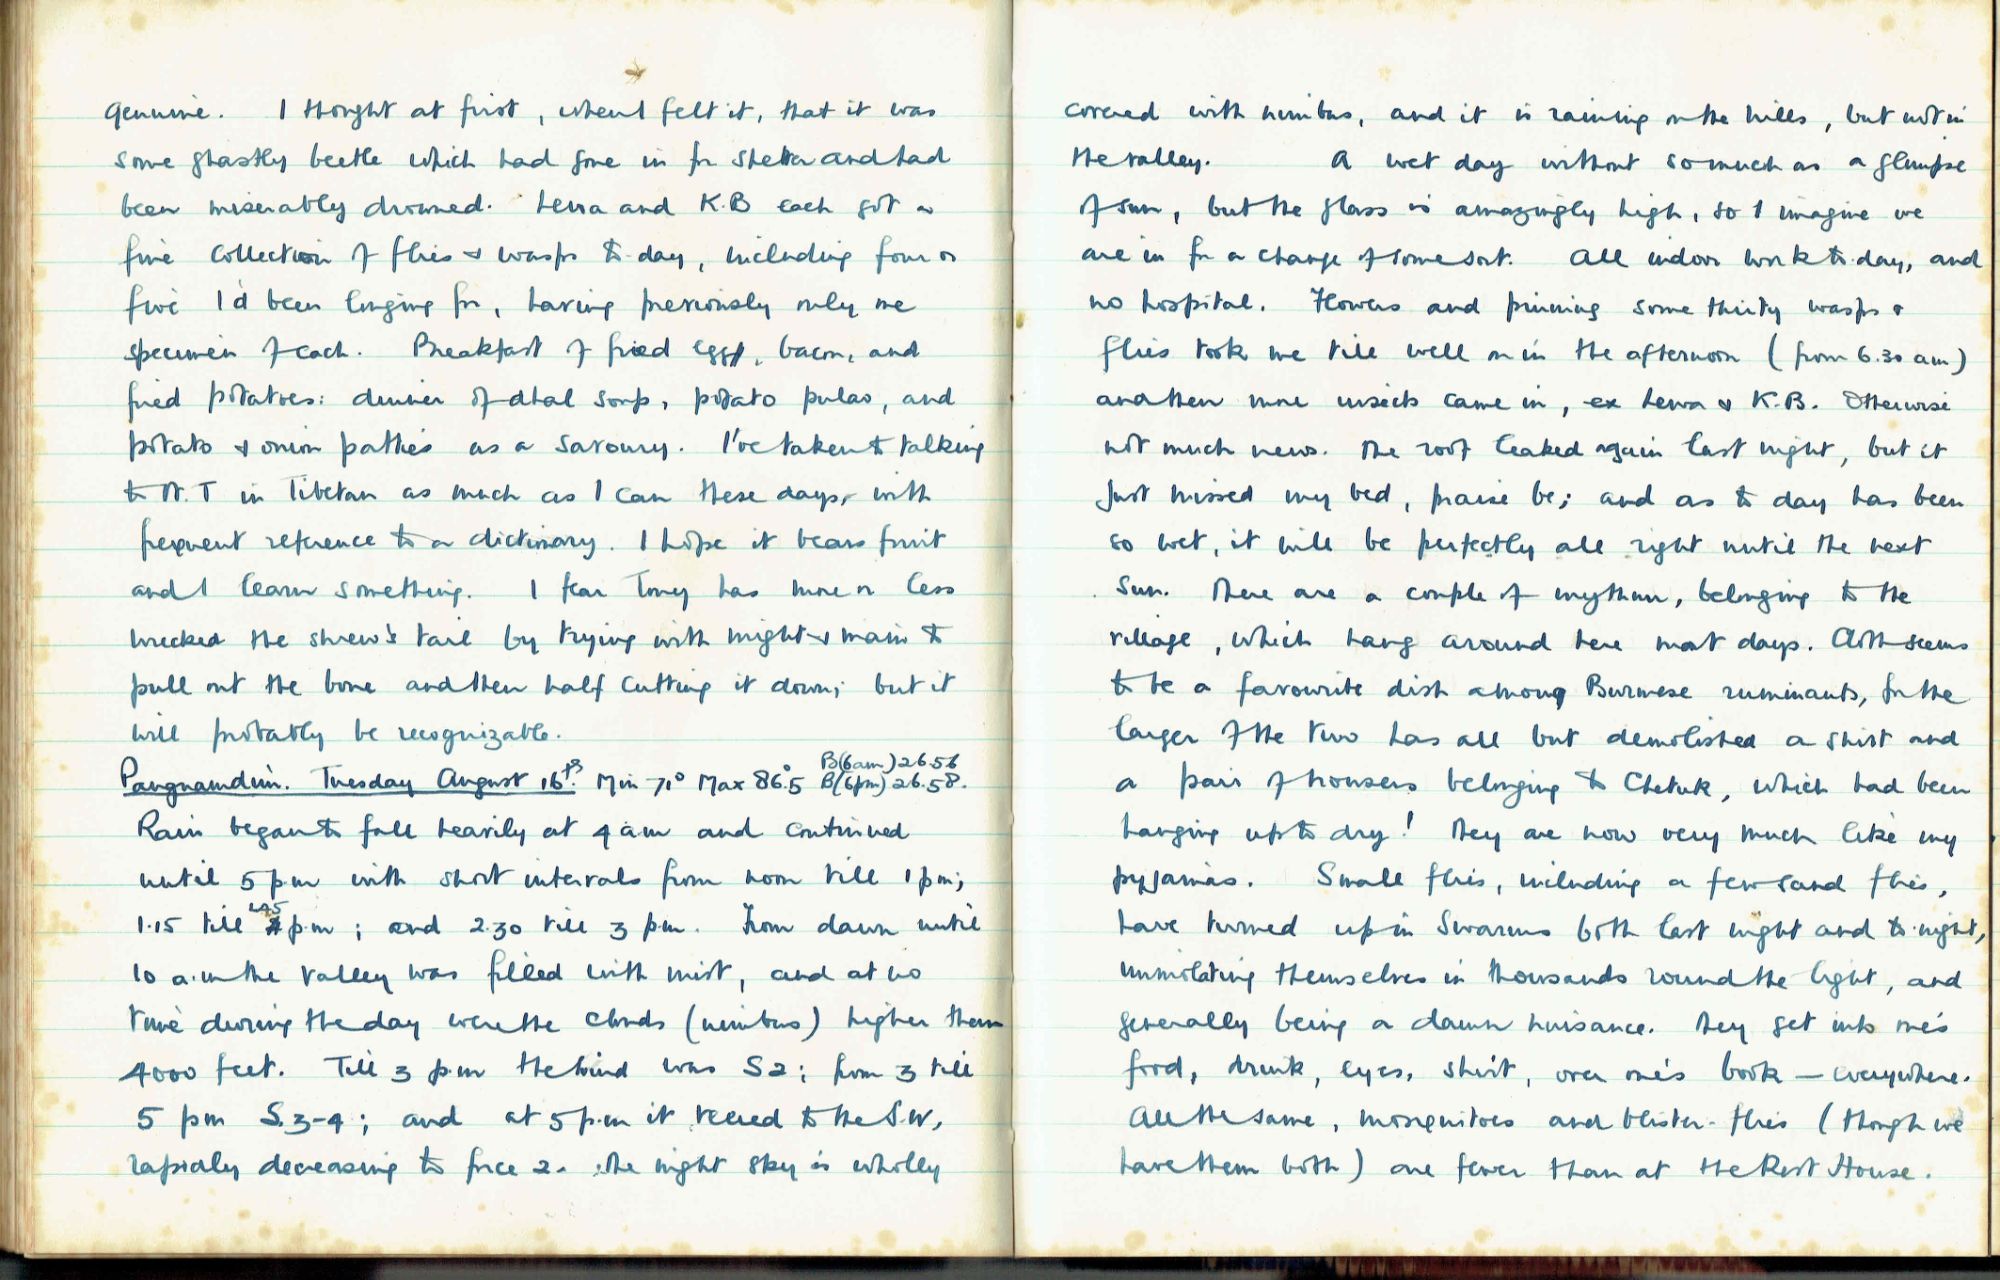 genuine. I thought at first, when I felt it, that it was
some ghastly beetle which had gone in for shelter and had
been miserably drowned. Lewa and K.B each got a
fine collection of flies & wasps to-day, including four or
five I'd been longing for, having previously only one
specimen of each. Breakfast of fried eggs, bacon, and
fried potatoes: dinner of dhal soup, potato pulao, and
potato & onion patties as a savoury. I've taken to talking
to N.T in Tibetan as much as I can these days, with
frequent reference to a dictionary. I hope it bears fruit
and I learn something. I fear Tony has more or less
wrecked the shrew's tail by trying with might & main to
pull out the bone and then half cutting it down; but it
will probably be recognizable.
Pangnamdim. Tuesday August 16th. Min 71° Max 86.5° B(6am)26.56 B(6pm)26.58.
Rain began to fall heavily at 4 am and continued
until 5 pm with short intervals from noon till 1 pm;
1.15 till 1.45 pm; and 2.30 till 3 pm. From dawn until
10 a.m the valley was filled with mist, and at no
time during the day were the clouds (nimbus) higher than
4000 feet. Till 3 pm the wind was S2; from 3 till
5 pm S.3-4; and at 5 p.m it veered to the S.W,
rapidly decreasing to force 2. The night sky is wholly
covered with nimbus, and it is raining on the hills, but not in
the valley. A wet day without so much as a glimpse
of sun, but the glass is amazingly high, so I imagine we
are in for a change of some sort. All indoor work to-day, and
no hospital. Flowers and pinning some thirty wasps &
flies took me till well on in the afternoon (from 6.30 am)
and then more insects came in, ex Lewa & K.B. Otherwise
not much news. The roof leaked again last night, but it
just missed my bed, praise be; and as to day has been
so wet, it will be perfectly all right until the next
sun. There are a couple of mythun, belonging to the
village, which hang around here most days. Cloth seems
to be a favourite dish among Burmese ruminants, for the
larger of the two has all but demolished a shirt and
a pair of trousers belonging to Chetuk, which had been
hanging up to dry! They are now very much like my
pyjamas. Small flies, including a few sand flies,
have turned up in swarms both last night and to-night,
immolating themselves in thousands round the light, and
generally being a damn nuisance. They get into one's
food, drink, eyes, shirt, over one's book — everywhere.
All the same, mosquitoes and blister-flies (though we
have them both) are fewer than at the Rest House.